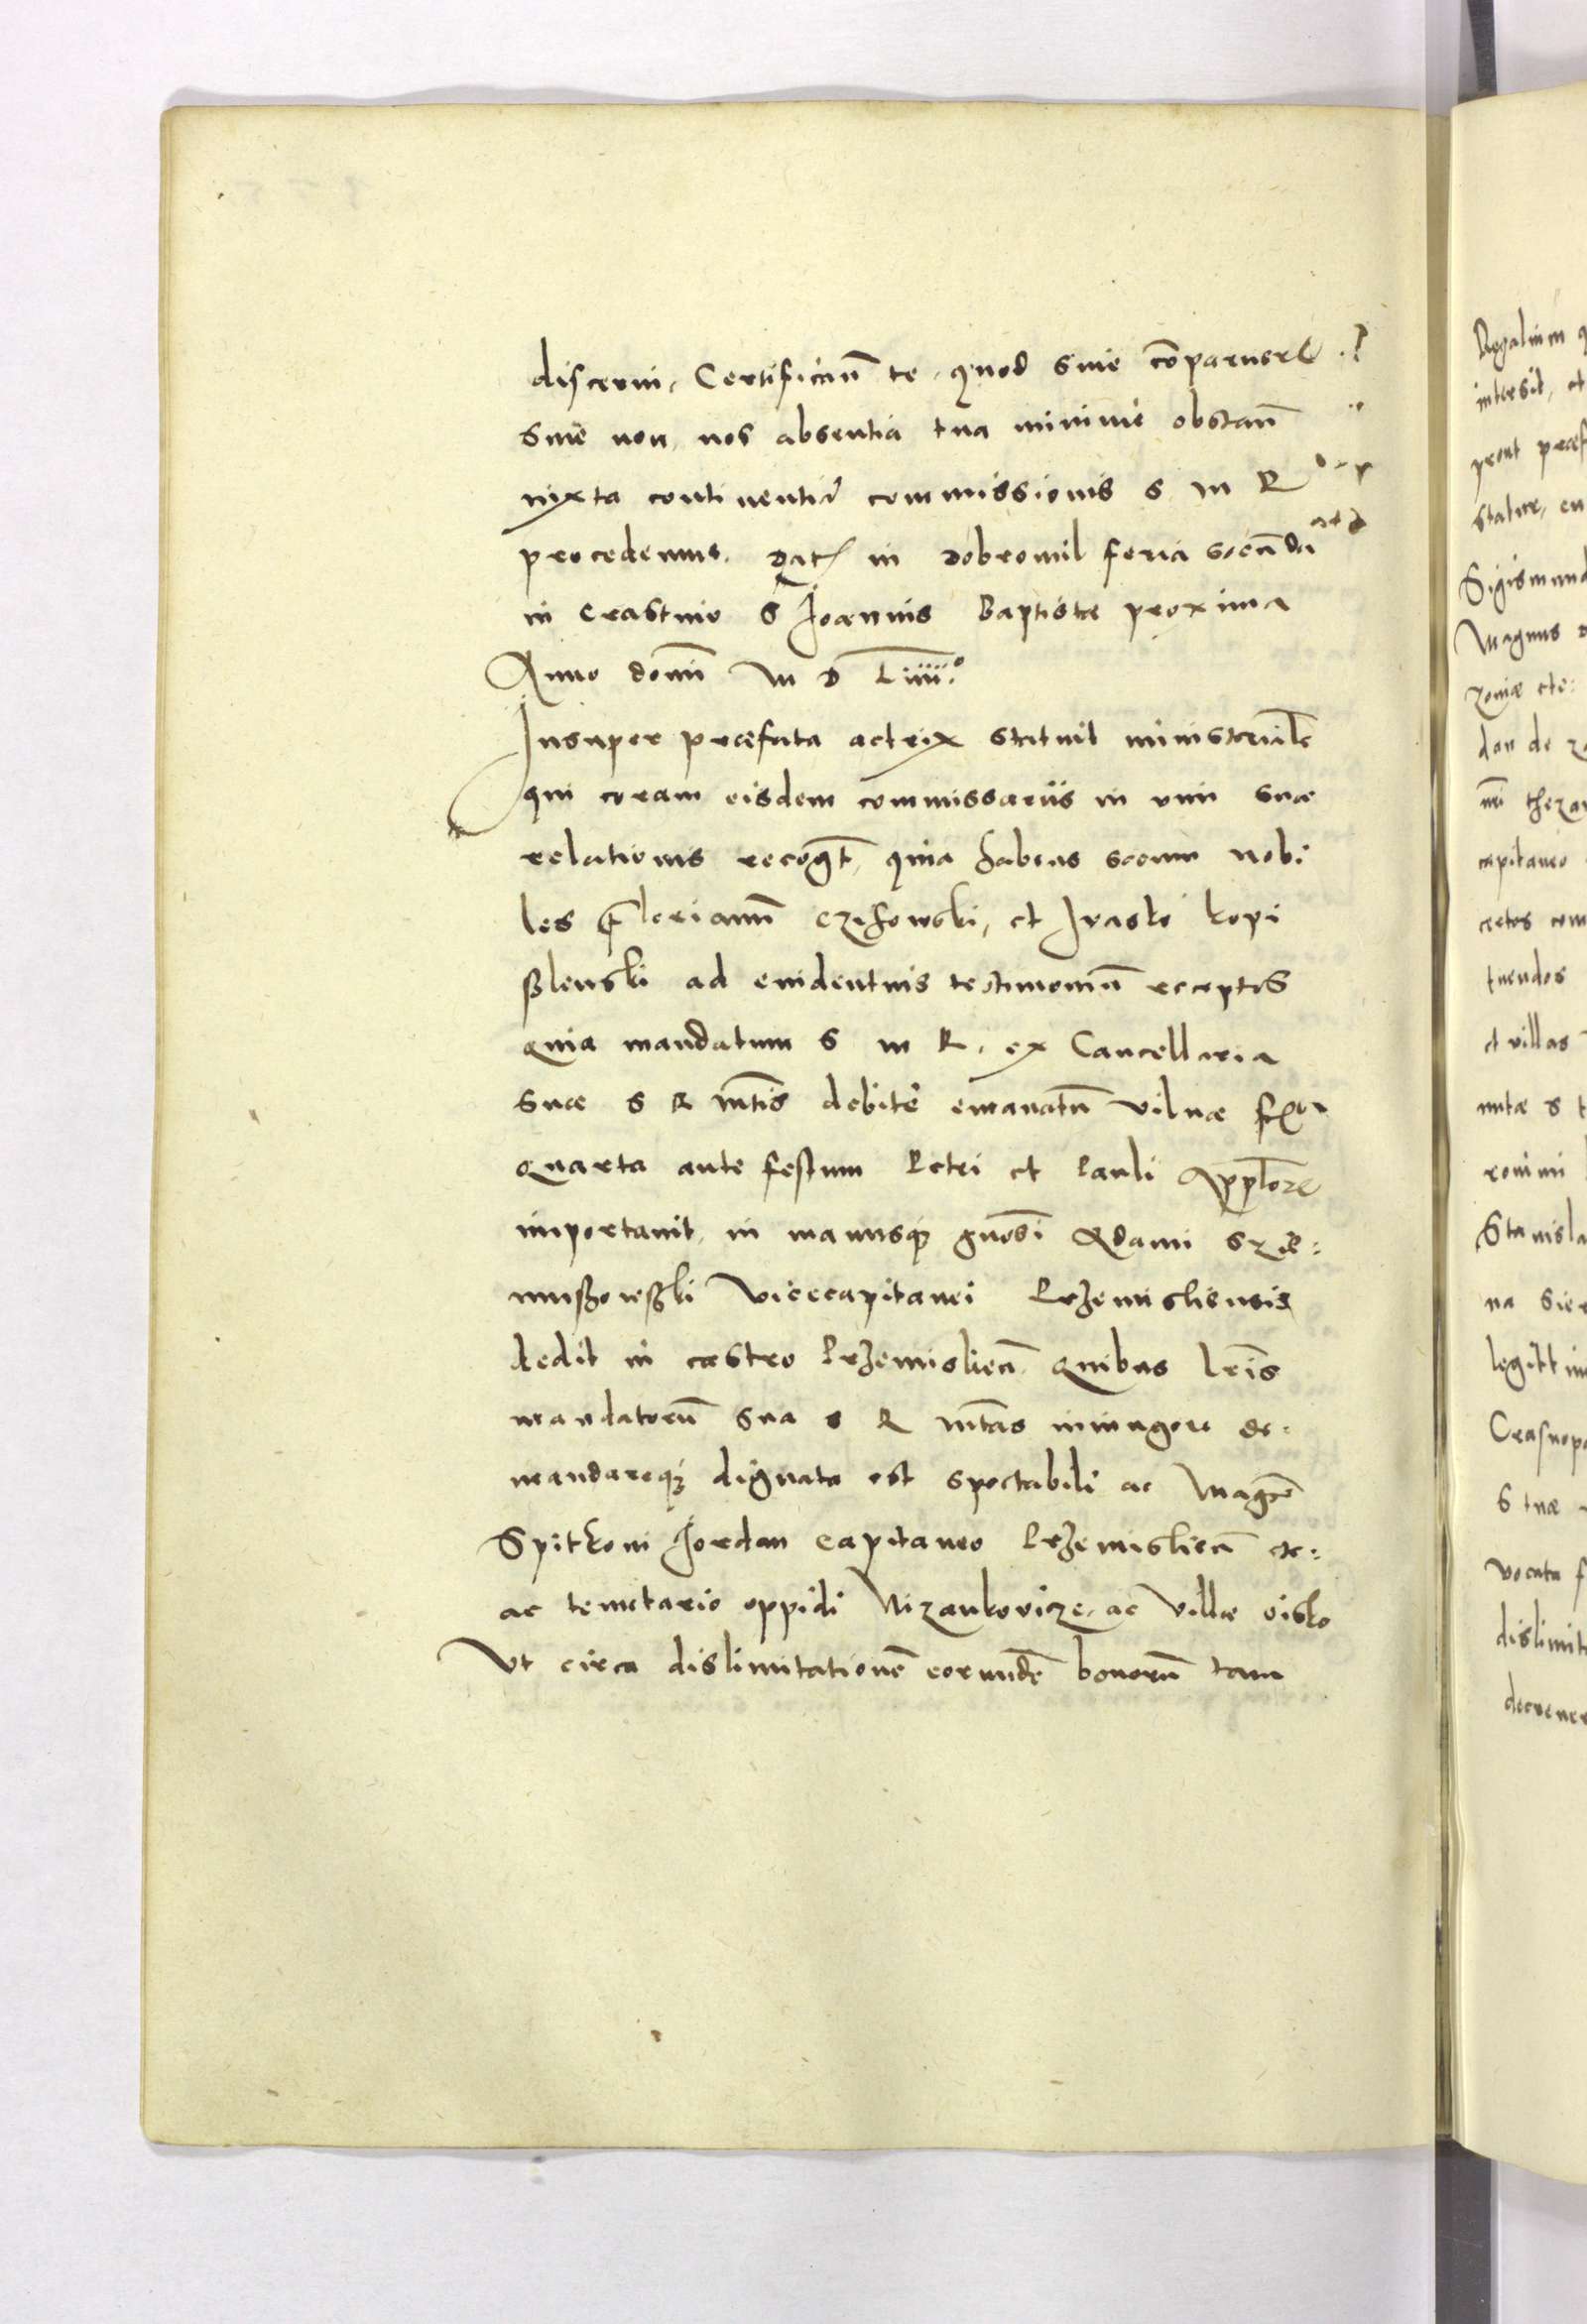 discerni, Certifican̄ te, quod siue cōparuere
siue non, nos absentia tua minimè obstan̄
iuxta continentiā commissionis S M R
procedemus. Dat in Dobromil feria secūda
in Crastino S Joannis Baptistæ proxima
Anno domī M D Liiii.º
Insuper præfata actrix statuit ministeriale
qui coram eisdem commissariis in vim suæ
relationis recog̅t, quia habens secum nobi
les Florianū Czihowski, et Jvasko kopi
sslenski ad euidentius testimoniū receptis
quia mandatum S M R. ex Cancellaria
suæ S R Mt̄is debitè emanatū Vilnæ
quarta ante festum Petri et Pauli App̄lor
importauit, in manusq; gn̄osi Adami
Vicecapitanei Przemisliensis
dedit in castro Przemislien̄. quibus lr̄is
mandatorū sua S R Mt̄as iniungere de:
mandareq; dignata est spectabili ac Mag̅co
Spitkoni Jordan Capitaneo Przemislien̄ etc:
ac tenutario oppidi Nizankovicze, ac villæ
Vt circa dislimitationē eorundē bonorū tam
Regalium
intersit, et
prout præf
statur, en
Sigismund
Magnus
zoniæ etc:
dan de
nr̄i theza
capitaneo
cretos com
tuendos
et villas
nutæ S
Stanisla
na
legitt im
Crasnopo
S tuæ
vocata f
dislimit
decrener